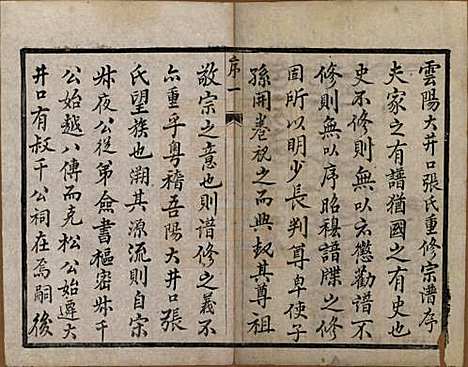 雲陽大井口張氏重修宗譜序
夫家之有譜猶國之有史也
史不修則無以示懲勸譜不
修則無以序昭穆譜牒之修
固所以明少長判尊卑使子
孫開卷視之而興起其尊祖
序一
敬宗之意也則譜修之義不
亦重乎粵稽吾陽大井口張
氏望族也溯其源流則自宗
叔夜公從弟僉書樞密叔千
公始越八傳而克松公始遷大
井口有叔千公祠在焉嗣後